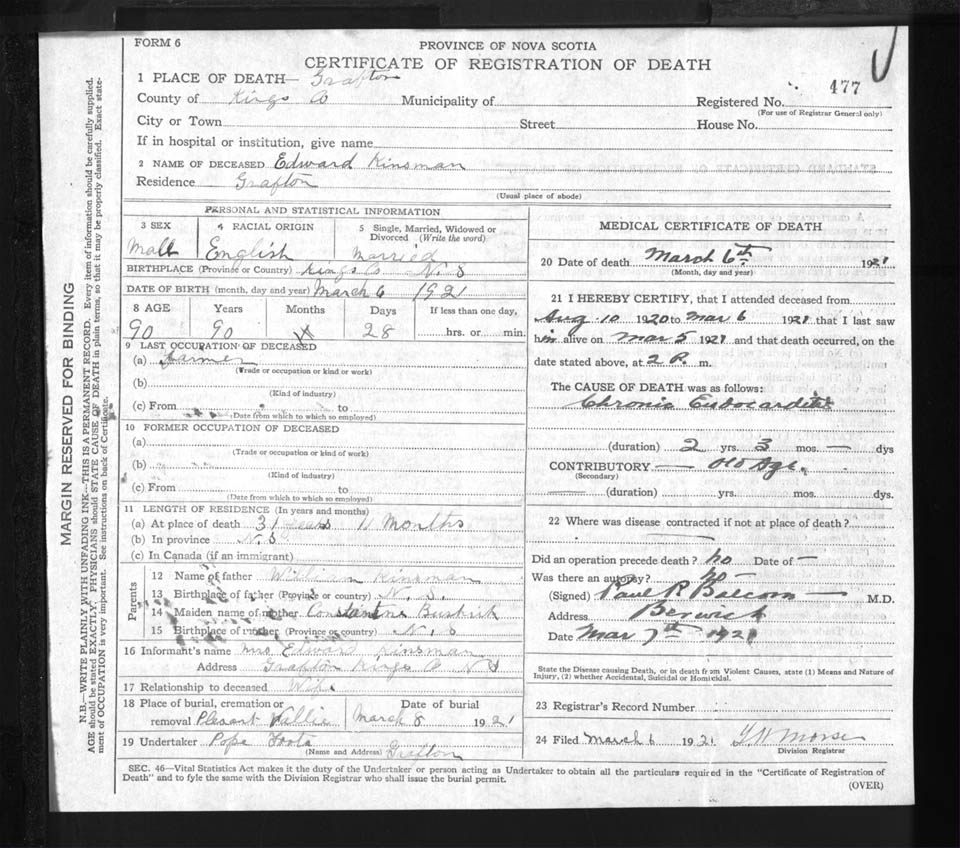 FORM 6
PROVINCE OF NOVA SCOTIA
CERTIFICATE OF REGISTRATION OF DEATH
1 PLACE OF DEATH— Grafton
477
County of Kings Co Municipality of Registered No.
(For use of Registrar General only)
City or Town Street House No.
If in hospital or institution, give name
2 NAME OF DECEASED Edward Kinsman
Residence Grafton
(Usual place of abode)
PERSONAL AND STATISTICAL INFORMATION
3 SEX 4 RACIAL ORIGIN 5 Single, Married, Widowed or Divorced (Write the word)
Mall English Married
BIRTHPLACE (Province or Country) Kings Co N. S
DATE OF BIRTH (month, day and year) March 6 1921
8 AGE Years Months Days If less than one day,
90 90 28 hrs. or min.
9 LAST OCCUPATION OF DECEASED
(a) Farmer
(Trade or occupation or kind or work)
(b)
(Kind of industry)
(c) From to
(Date from which to which so employed)
10 FORMER OCCUPATION OF DECEASED
(a)
(Trade or occupation or kind or work)
(b)
(Kind of industry)
(c) From to
(Date from which to which so employed)
11 LENGTH OF RESIDENCE (In years and months)
(a) At place of death 31 years 11 Months
(b) In province N. S
(c) In Canada (if an immigrant)
Parents
12 Name of father William Kinsman
13 Birthplace of father (Province or country) N. S.
14 Maiden name of mother Constantine
15 Birthplace of mother (Province or country) N. S
16 Informant's name Mrs Edward Kinsman
Address Grafton Kings Co N S
17 Relationship to deceased Wife
18 Place of burial, cremation or removal Date of burial
Plesant Vallie March 8 1921
19 Undertaker Pope Foots
(Name and Address) Grafton
MEDICAL CERTIFICATE OF DEATH
20 Date of death March 6th 1921
(Month, day and year)
21 I HEREBY CERTIFY, that I attended deceased from
Aug 10 1920 to Mar 6 1921 that I last saw
him alive on Mar 5 1921 and that death occurred, on the
date stated above, at 2 P. m.
The CAUSE OF DEATH was as follows:
Chronic Endocarditis
(duration) 2 yrs. 3 mos. — dys
CONTRIBUTORY — Old Age.
(Secondary)
(duration) yrs. mos. dys.
22 Where was disease contracted if not at place of death?
Did an operation precede death? no Date of —
Was there an autopsy? no
(Signed) Paul R Balcom — M.D.
Address Berwick
Date Mar 7th 1921
State the Disease causing Death, or in death from Violent Causes, state (1) Means and Nature of
Injury, (2) whether Accidental, Suicidal or Homicidal.
23 Registrar's Record Number
24 Filed March 6 1921 Morse
Division Registrar
SEC. 46—Vital Statistics Act makes it the duty of the Undertaker or person acting as Undertaker to obtain all the particulars required in the "Certificate of Registration of
Death" and to fyle the same with the Division Registrar who shall issue the burial permit.
(OVER)
MARGIN RESERVED FOR BINDING
N.B.—WRITE PLAINLY WITH UNFADING INK—THIS IS A PERMANENT RECORD. Every item of information should be carefully supplied.
AGE should be stated EXACTLY. PHYSICIANS should STATE CAUSE OF DEATH in plain terms, so that it may be properly classified. Exact state-
ment of OCCUPATION is very important. See instructions on back of Certificate.